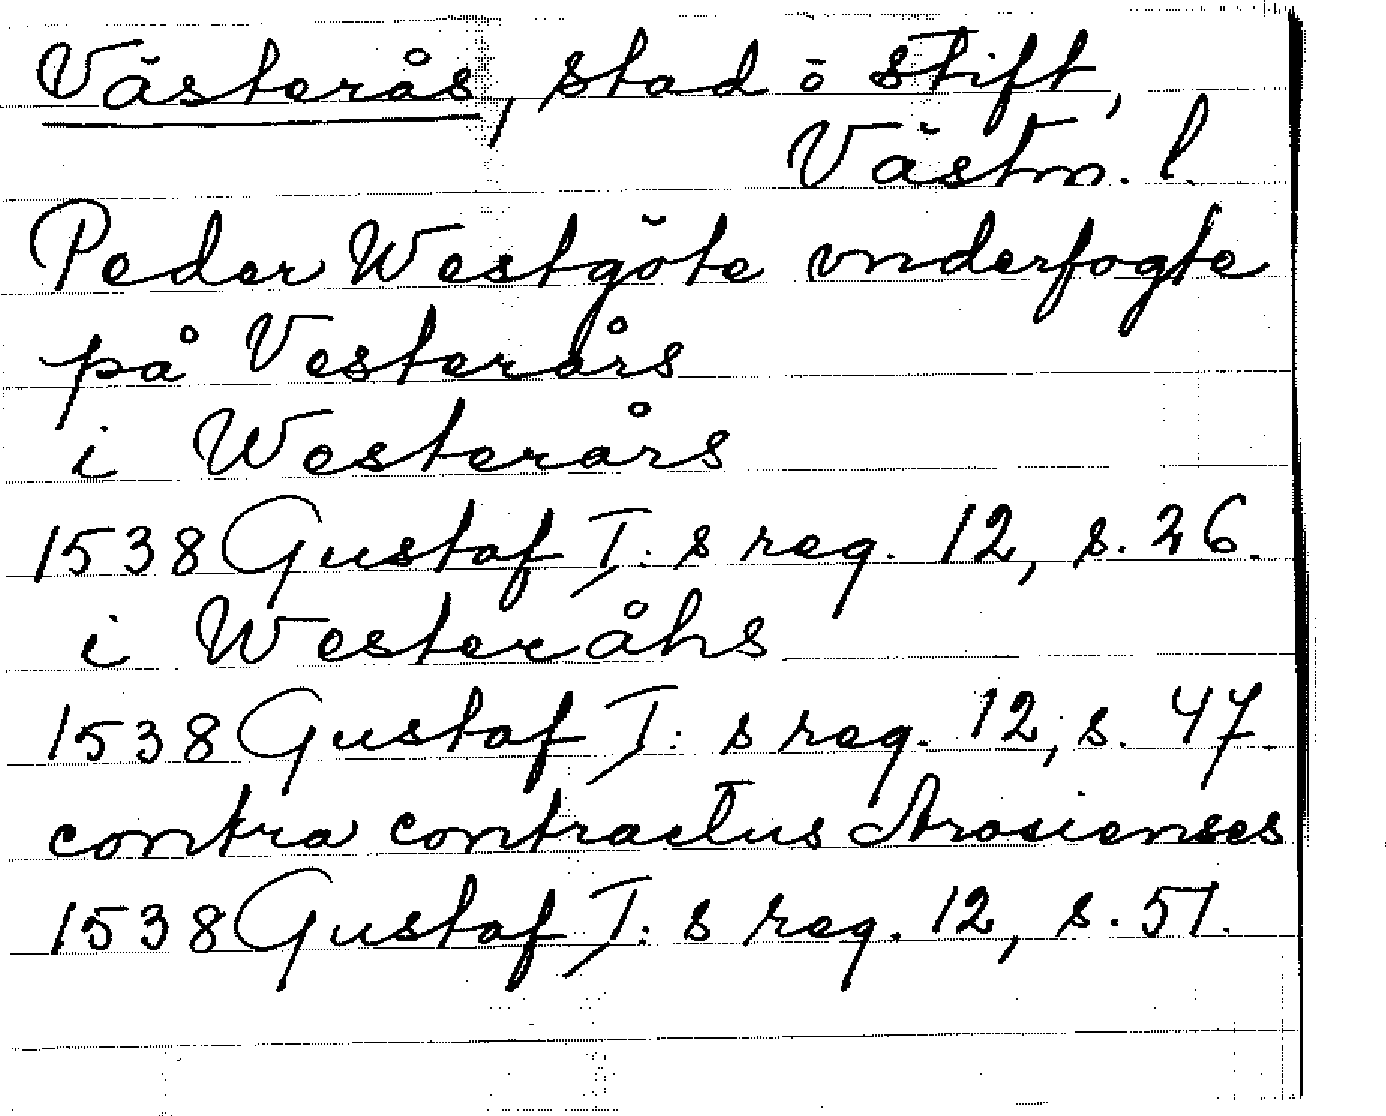 Västerås, stad o stift,
Västm. l.
Peder Westgöte vnderfogte
på Vesterårs
i Westerårs
1538 Gustaf I:s reg. 12, s. 26.
i Westeråhs
1538 Gustaf I:s reg. 12, s. 47.
contra contractus Arosienses
1538 Gustaf I:s reg. 12, s. 51.